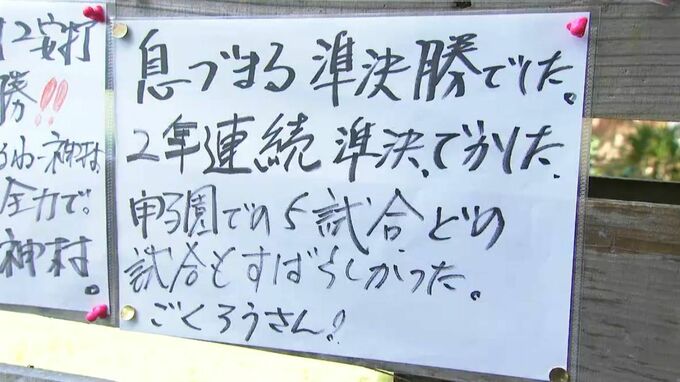 12安打
勝!!
るね-神村
全力で。
神村。
息づまる準決勝でした。
2年連続準決、でかした
甲子園での5試合どの
試合もすばらしかった。
ごくろうさん!